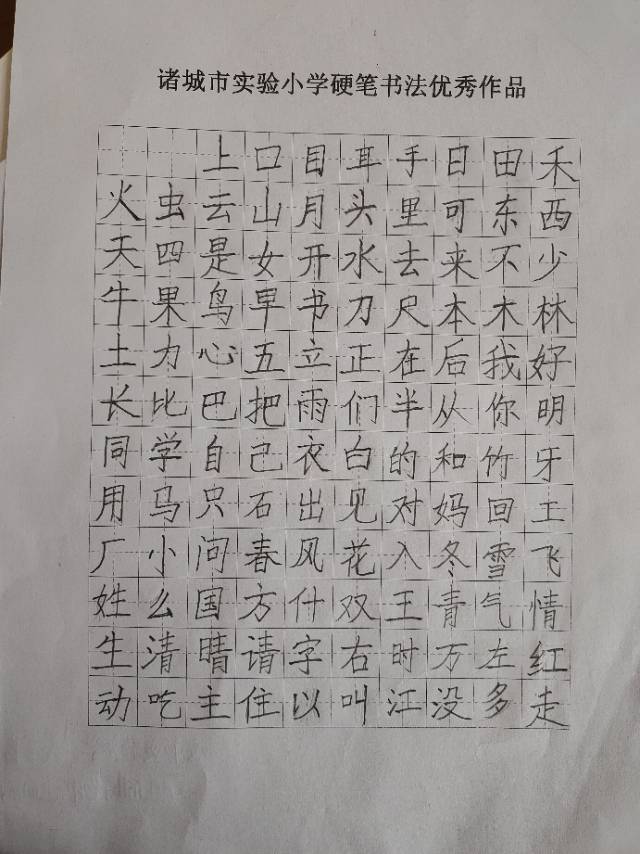 诸城市实验小学硬笔书法优秀作品
上口目耳手日田禾
火虫云山月头里可东西
天四是女开水去来不少
牛果鸟早书刀尺本木林
土力心五立正在后我好
长比巴把雨们半从你明
同学自己衣白的和竹牙
用马只石出见对妈回工
厂小问春风花入冬雪飞
姓么国方什双王青气情
生清晴请字右时万左红
动吃主住以叫江没多走